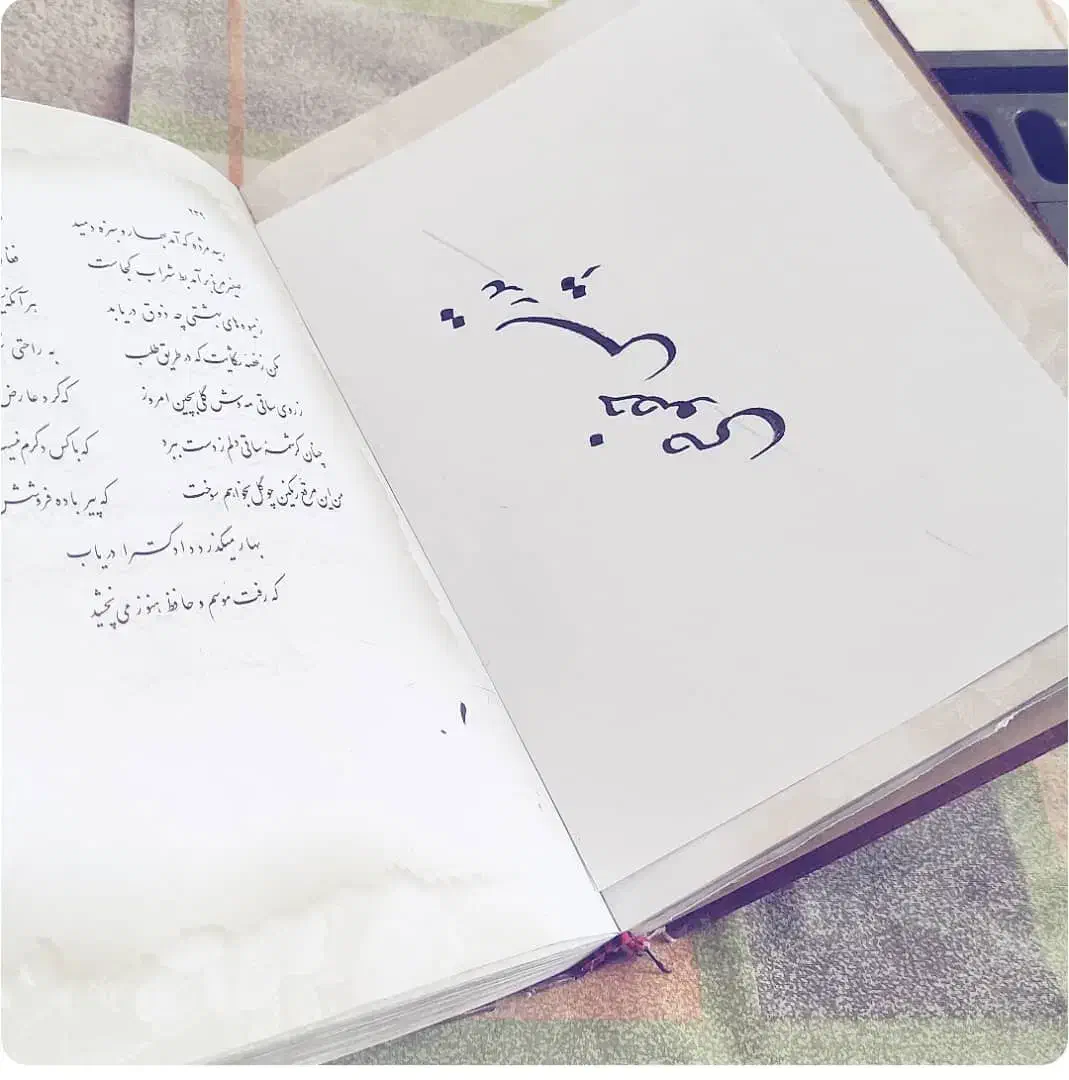 رسید مژده که آمد بهار و سبزه دمید
صفیر مرغ برآمد بط شراب کجاست
ز میوه‌های بهشتی چه ذوق دریابد هر آنکه
مکن ز غصه شکایت که در طریق طلب به راحتی
ز روی ساقی مه‌وش گلی بچین امروز که گرد عارض
چنان کرشمه ساقی دلم ز دست ببرد که با کس دگرم
من این مرقع رنگین چو گل بخواهم سوخت که پیر باده فروشش
بهار میگذرد دادگسترا دریاب
که رفت موسم و حافظ هنوز می نچشید